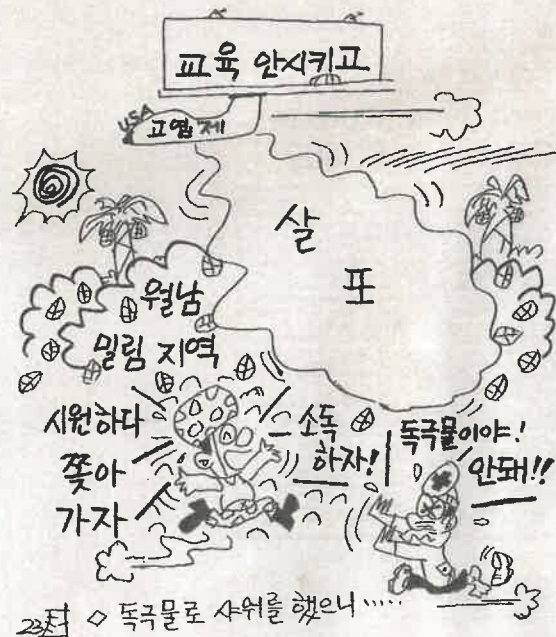 교육 안시키고
USA
고엽제
살
포
월남
밀림 지역
시원하다
쫓아
가자
소독
하자!
독극물이야!
안돼!!
23편 ◇ 독극물로 샤워를 했으니.....